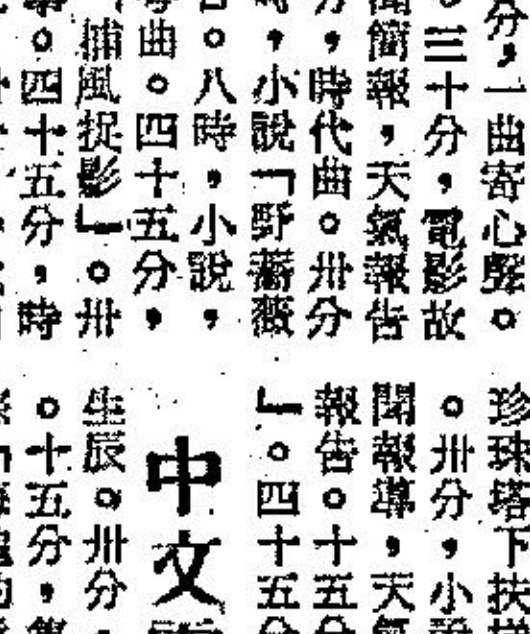 分，一曲寄心聲。
。三十分，電影故
聞簡報，天氣報告
分，時代曲。卅分
時，小說「野薔薇
。八時，小說，
曲。四十五分，
「捕風捉影」。卅
。四十五分，時
珍珠塔下扶
。卅分，小說
聞報導，天氣
報告。十五分
」。四十五分
中文
生辰。卅分，
。十五分，